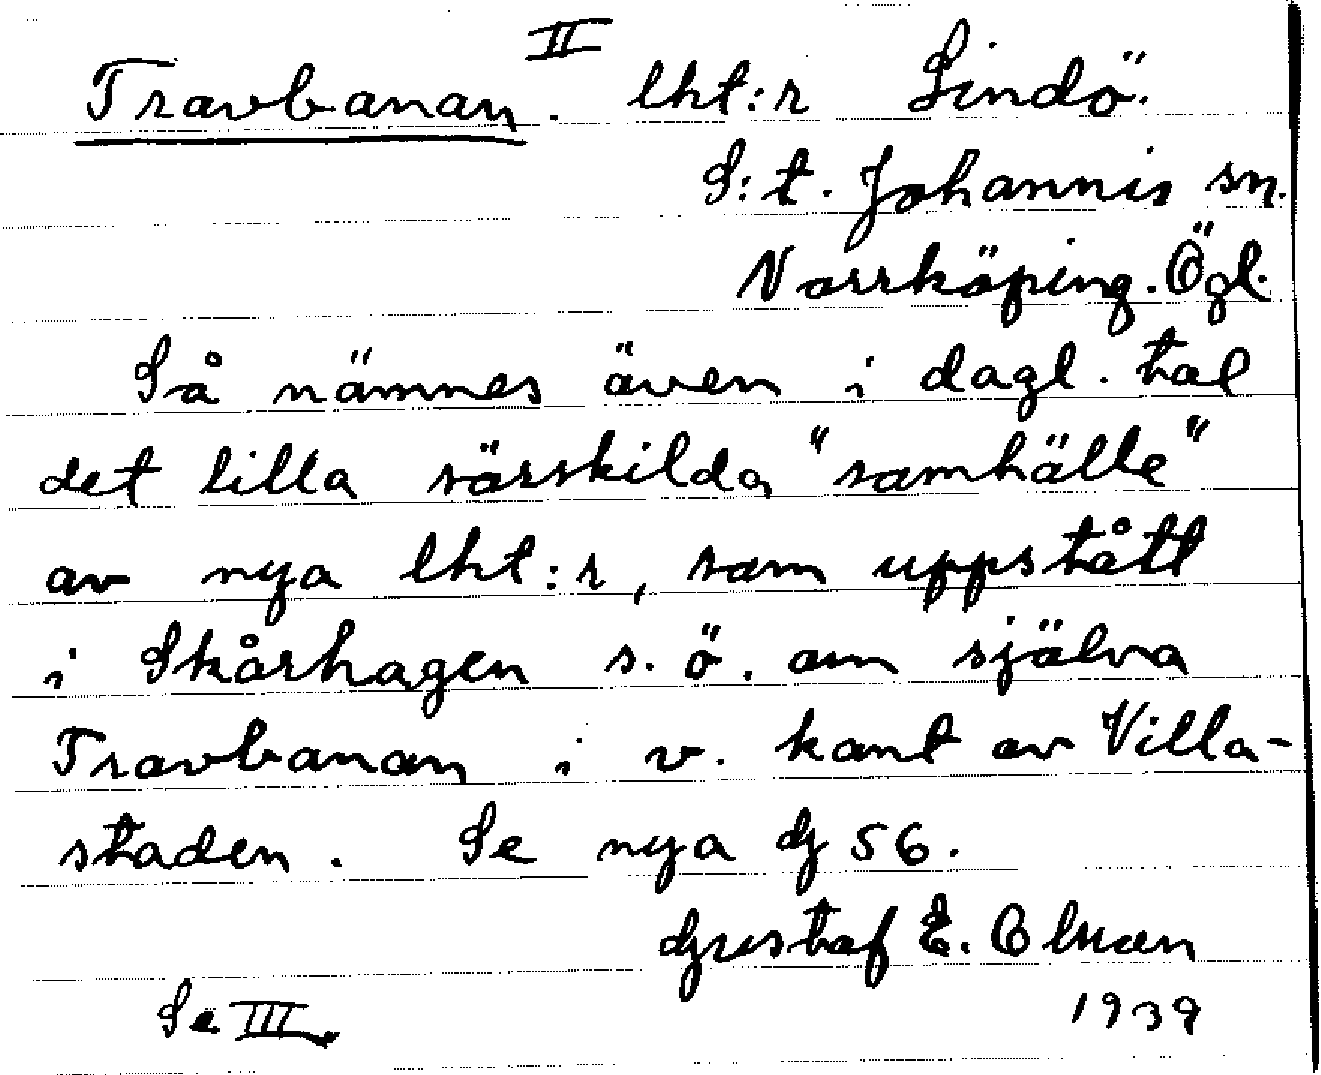 Travbanan. II lht:r Lindö.
S:t. Johannis sn.
Norrköping. Ögl.
Så nämnes även i dagl. tal
det lilla särskilda "samhälle"
av nya lht:r, som uppstått
i Skårhagen s. ö. om själva
Travbanan i v. kant av Villa-
staden. Se nya G 56.
Gustaf E. Olman
Se III.
1939